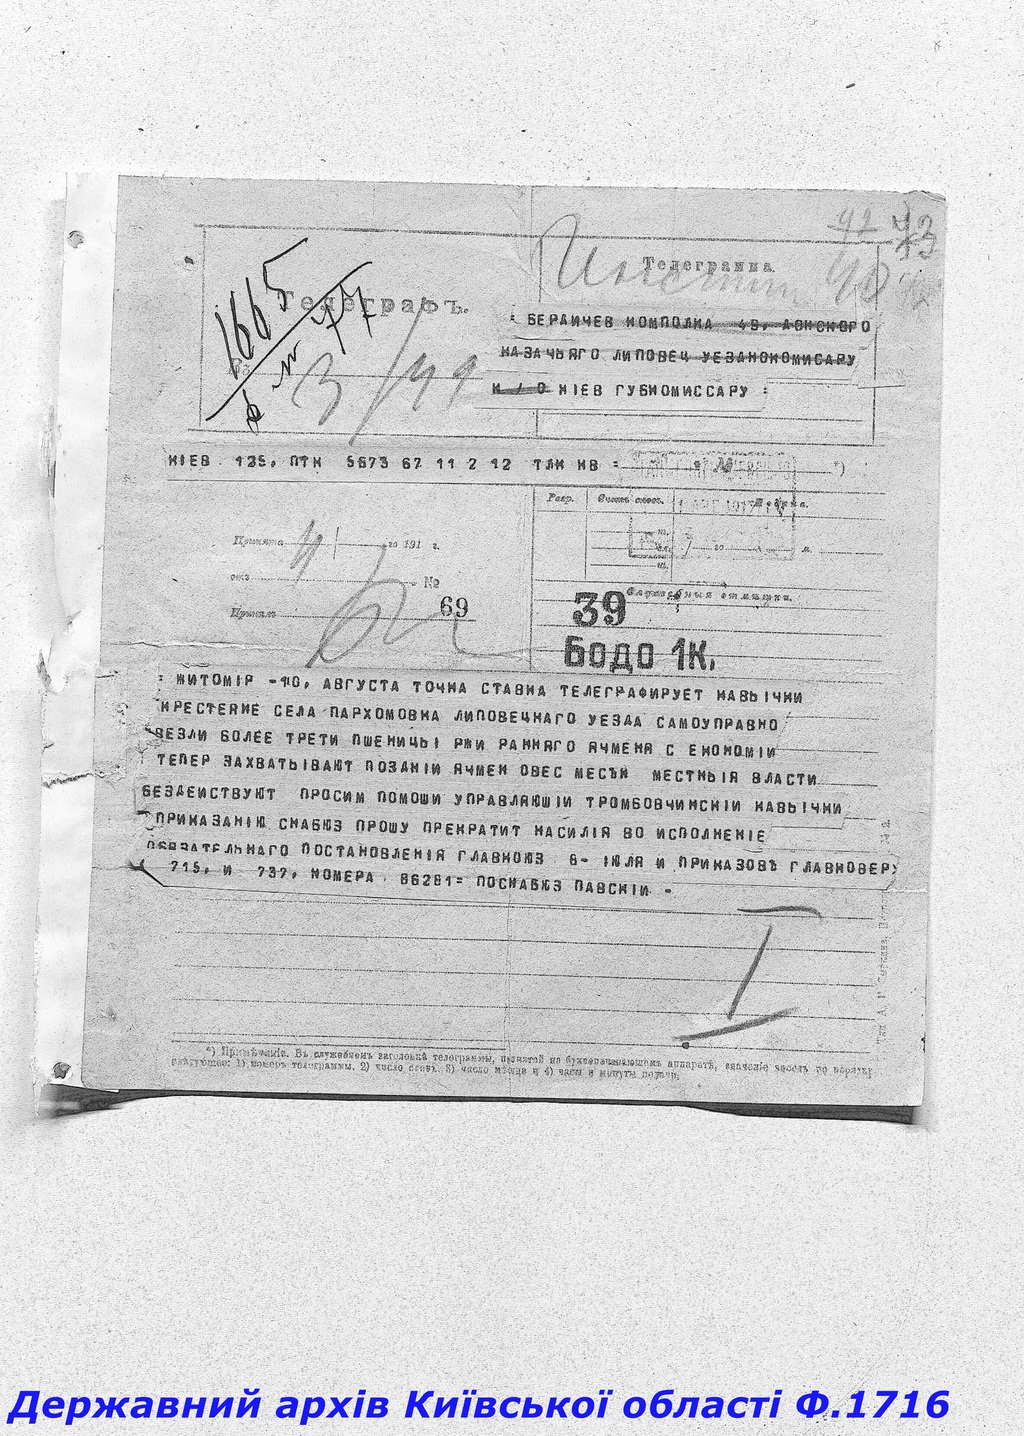 42 43
Телеграмма.
Телеграфъ.
1665
№ 77
3/49
: БЕРДИЧЕВ КОМПОЛКА 49, ДОНСКОГО
КАЗАЧЬЯГО ЛИПОВЕЦ УЕЗДНОКОМИСАРУ
К / О КІЕВ ГУБКОМИССАРУ =
КІЕВ 125, ПТК 5673 67 11 2 12 ТЛК КВ = *)
Разр. Счетъ словъ.
Принята го 191 г.
отъ №
Принялъ 69
Служебныя отмѣтки.
39
Бодо 1К.
= ЖИТОМІР -10, АВГУСТА ТОЧКА СТАВКА ТЕЛЕГРАФИРУЕТ КАВЫЧКИ
КРЕСТЕЯНЕ СЕЛА ПАРХОМОВКА ЛИПОВЕЦКАГО УЕЗДА САМОУПРАВНО
ВЕЗЛИ БОЛЕЕ ТРЕТИ ПШЕНИЦЫ РЖИ РАННЯГО ЯЧМЕНЯ С ЕКОНОМІИ
ТЕПЕР ЗАХВАТЫВАЮТ ПОЗДНІЙ ЯЧМЕН ОВЕС МЕСЪК МЕСТНЫЯ ВЛАСТИ
БЕЗДЕИСТВУЮТ ПРОСИМ ПОМОШИ УПРАВЛЯЮШІЙ ТРОМБОВЧИНСКІЙ КАВЫЧКИ
ПРИКАЗАНІЮ СНАБЮЗ ПРОШУ ПРЕКРАТИТ НАСИЛІЯ ВО ИСПОЛНЕНІЕ
ОБЯЗАТЕЛЬНАГО ПОСТАНОВЛЕНІЯ ГЛАВКОЮЗ 8- ІЮЛЯ И ПРИКАЗОВЪ ГЛАВКОВЕР
715, И 737, НОМЕРА 86281= ПОСНАБЮЗ ПАВСКІЙ -
I
*) Примѣчаніе. Въ служебномъ заголовкѣ телеграммы, принятой на буквопечатающемъ аппаратѣ, значеніе чиселъ по порядку
слѣдующее: 1) номеръ телеграммы, 2) число словъ, 3) число мѣсяца и 4) часы и минуты подачи.
Державний архів Київської області Ф.1716